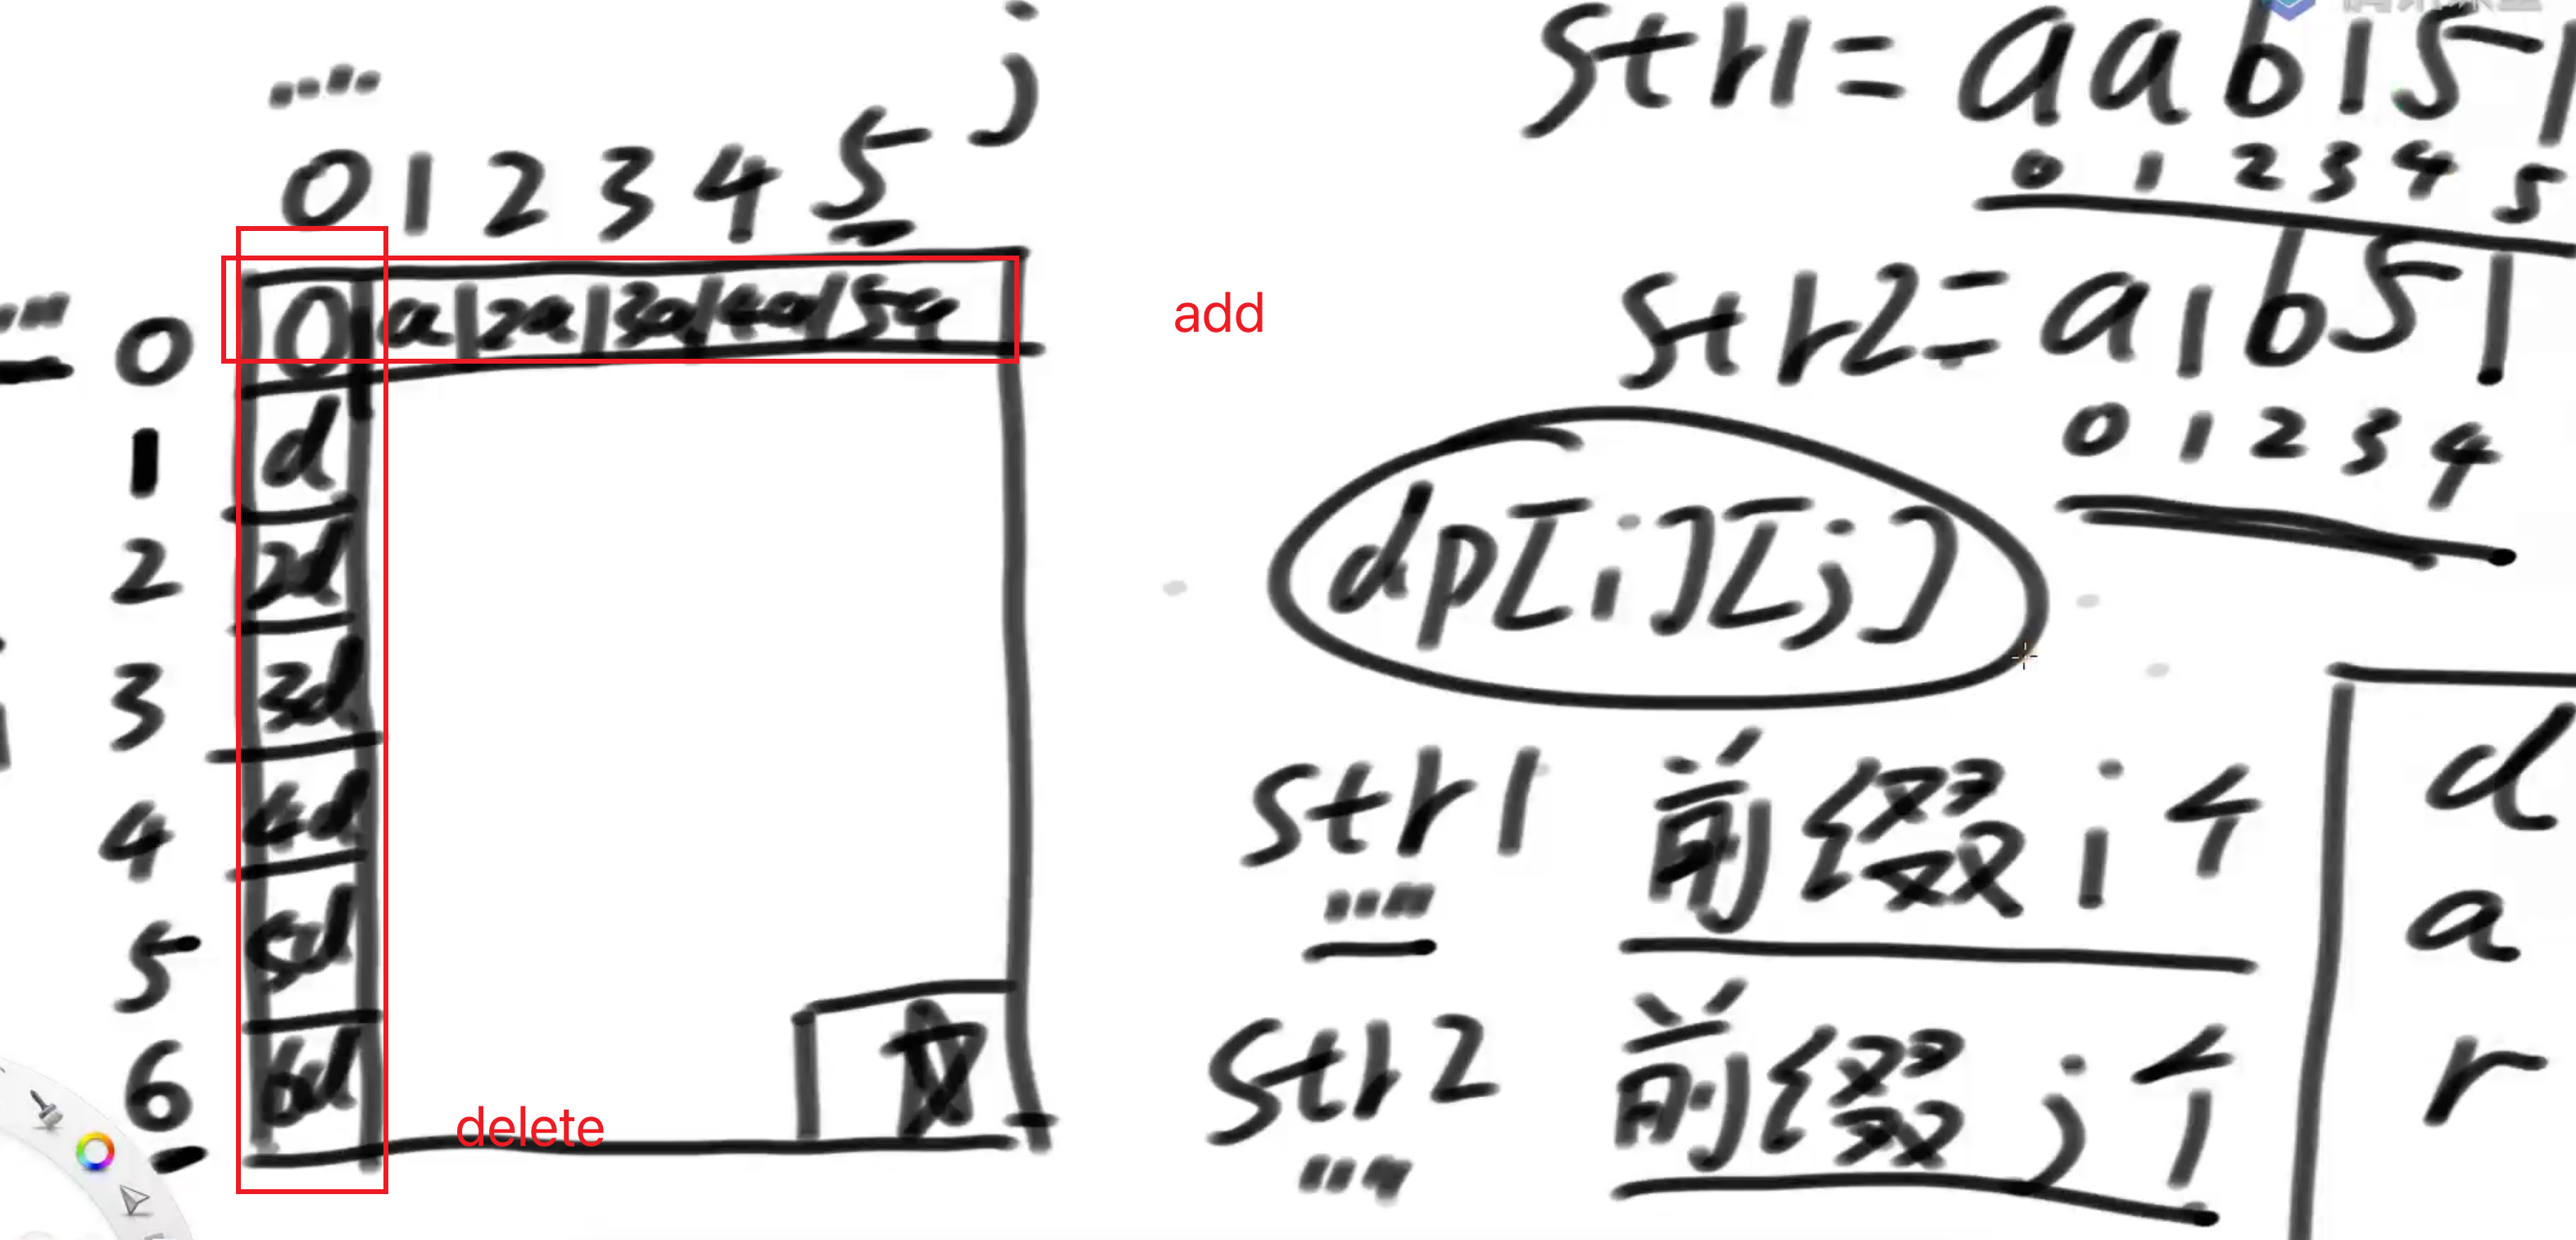 j
0 1 2 3 4 5
0 0 a 2a 3a 4a 5a
add
1 d
2 2d
3 3d
4 4d
5 5d
6 6d
delete
str1= aab151
0 1 2 3 4 5
str2= a1b51
0 1 2 3 4
dp[i][j]
str1 前缀i个
str2 前缀j个
d
a
r